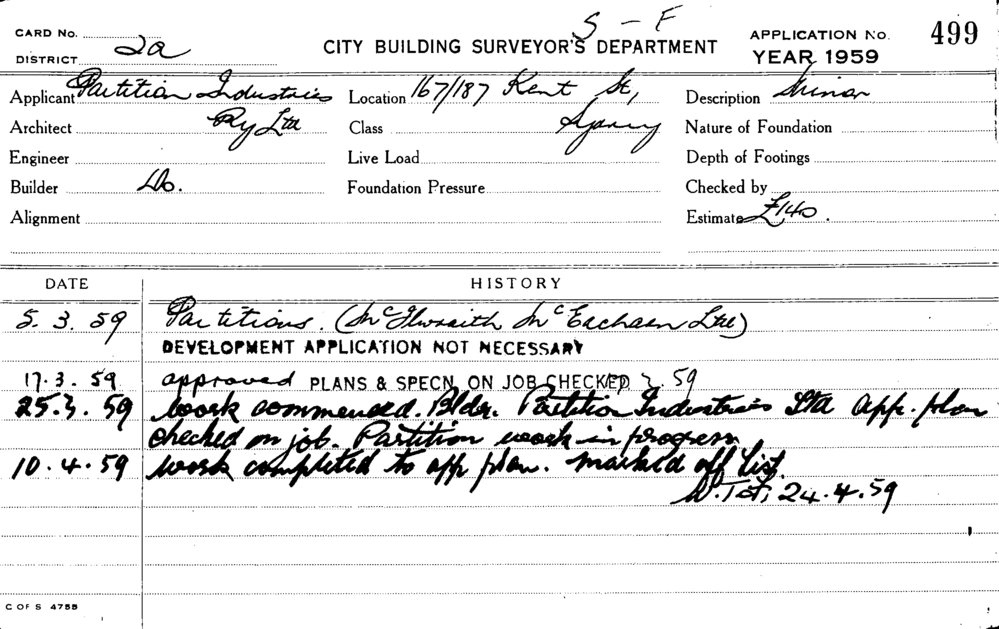 S - F
CARD No.
DISTRICT 2a
CITY BUILDING SURVEYOR'S DEPARTMENT
APPLICATION No. 499
YEAR 1959
Applicant Partition Industries Location 167/187 Kent St, Description Minor
Architect Pty Ltd Class Sydney Nature of Foundation
Engineer Live Load Depth of Footings
Builder Do. Foundation Pressure Checked by
Alignment Estimate £140.
DATE HISTORY
5.3.59 Partitions. (McIlwraith McEacharn Ltd)
DEVELOPMENT APPLICATION NOT NECESSARY
17.3.59 approved PLANS & SPECN. ON JOB CHECKED 3.59
25.3.59 Work commenced. Bldr. Partition Industries Ltd app. plan
checked on job. Partition work in progress
10.4.59 Work completed to app plan. marked off list.
24.4.59
C OF S 4755